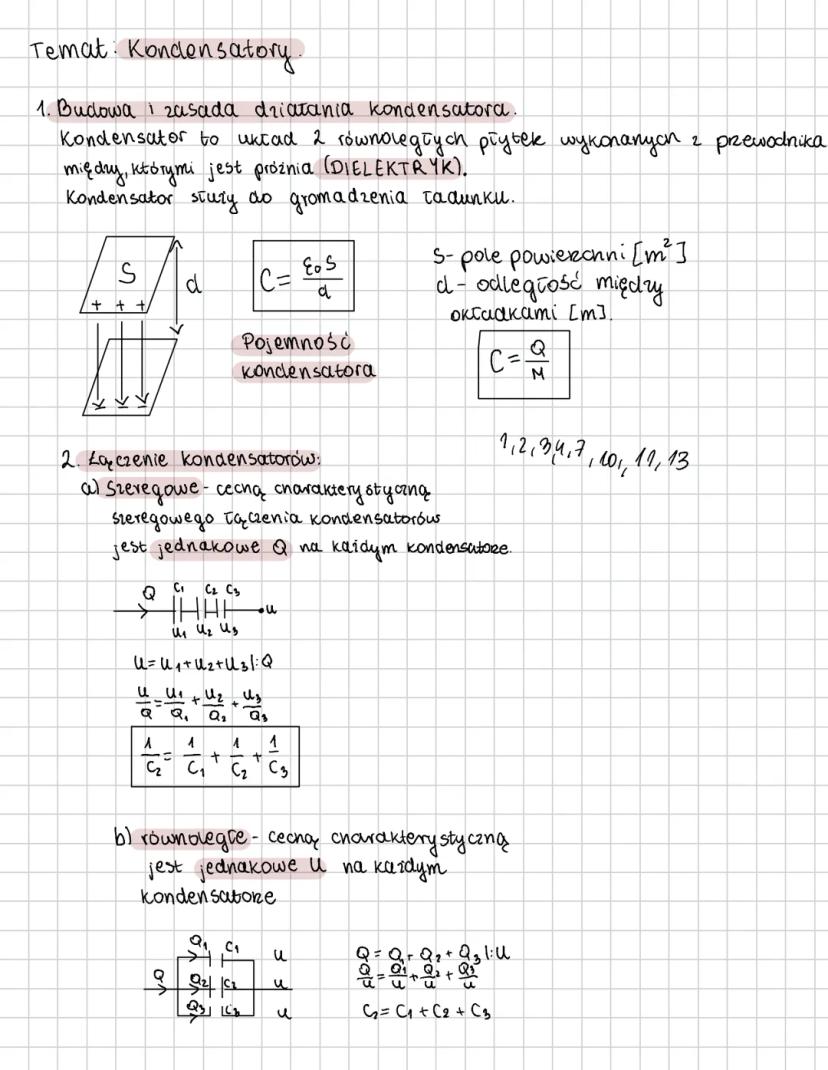 Temat: Kondensatory.
1. Budowa i zasada działania kondensatora.
Kondensator to układ 2 równoległych płytek wykonanych z przewodnika
między, którymi jest próżnia (DIELEKTRYK).
Kondensator służy do gromadzenia ładunku.
S
d
+ + +
- - -
C = ε₀S/d
Pojemność
kondensatora
S- pole powierzchni [m²]
d - odległość między
okładkami [m].
C = Q/M
1,2,3,4,7,10,11,13
2. Łączenie kondensatorów:
a) Szeregowe - cechą charakterystyczną
szeregowego łączenia kondensatorów
jest jednakowe Q na każdym kondensatorze.
Q C₁ C₂ C₃
u
U₁ U₂ U₃
U = U₁+U₂+U₃ |:Q
U/Q = U₁/Q₁ + U₂/Q₂ + U₃/Q₃
1/C₂ = 1/C₁ + 1/C₂ + 1/C₃
b) równoległe - cechą charakterystyczną
jest jednakowe U na każdym
kondensatorze
Q₁ C₁ u
Q Q₂ C₂ u
Q₃ C₃ u
Q = Q₁+ Q₂ + Q₃ |:U
Q/u = Q₁/u + Q₂/u + Q₃/u
C₂ = C₁ + C₂ + C₃